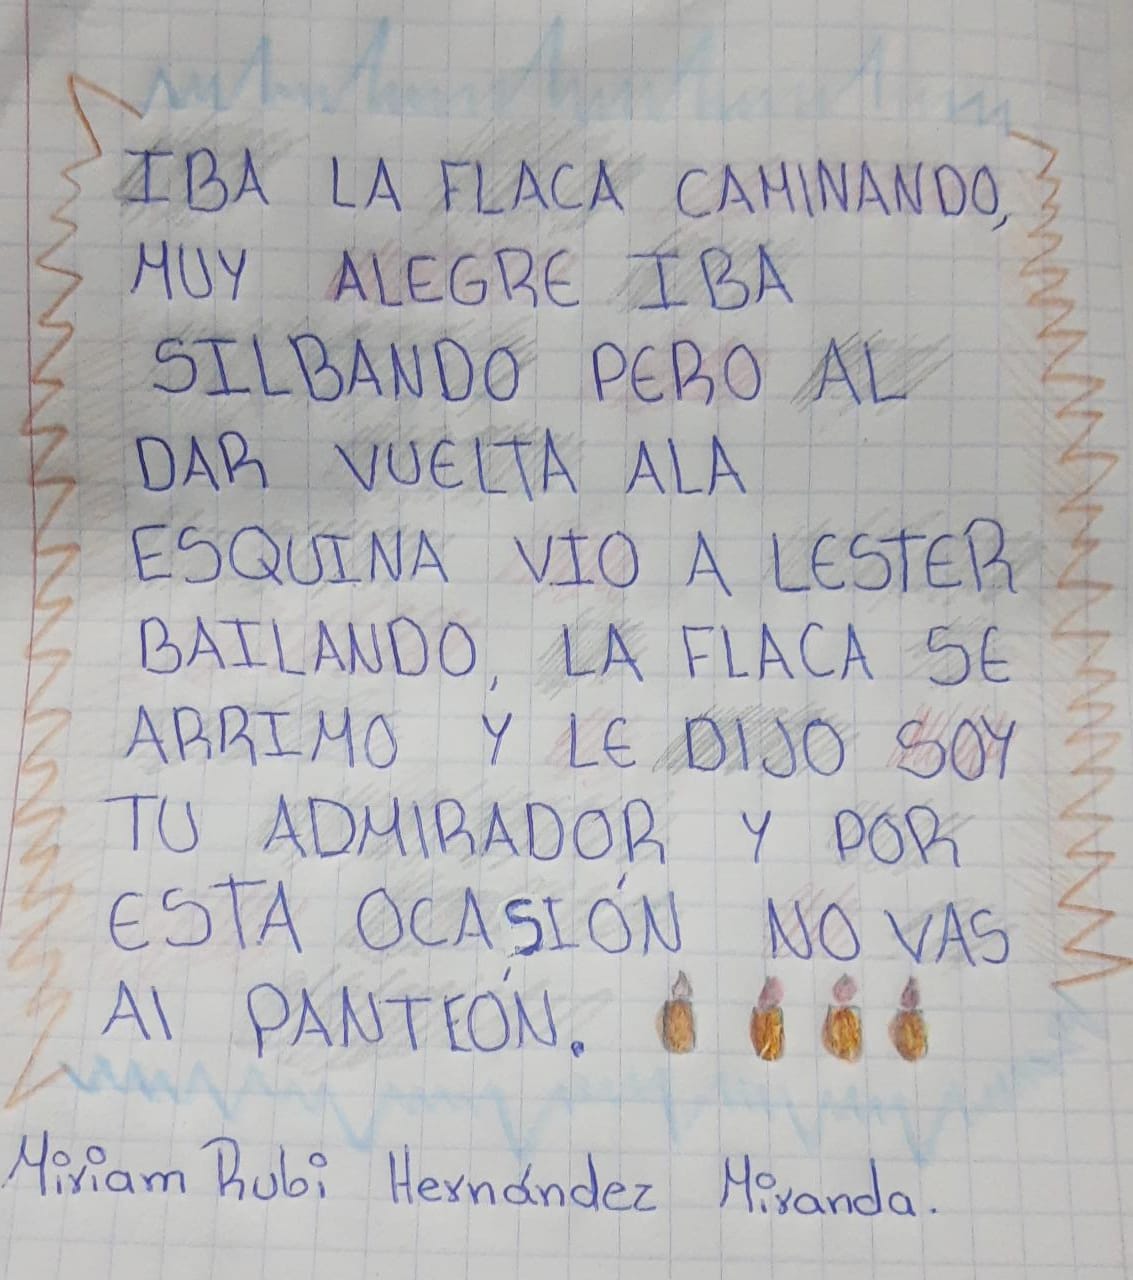 IBA LA FLACA CAMINANDO,
MUY ALEGRE IBA
SILBANDO PERO AL
DAR VUELTA ALA
ESQUINA VIO A LESTER
BAILANDO, LA FLACA SE
ARRIMO Y LE DIJO SOY
TU ADMIRADOR Y POR
ESTA OCASIÓN NO VAS
Al PANTEÓN.
Miriam Rubi Hernández Miranda.